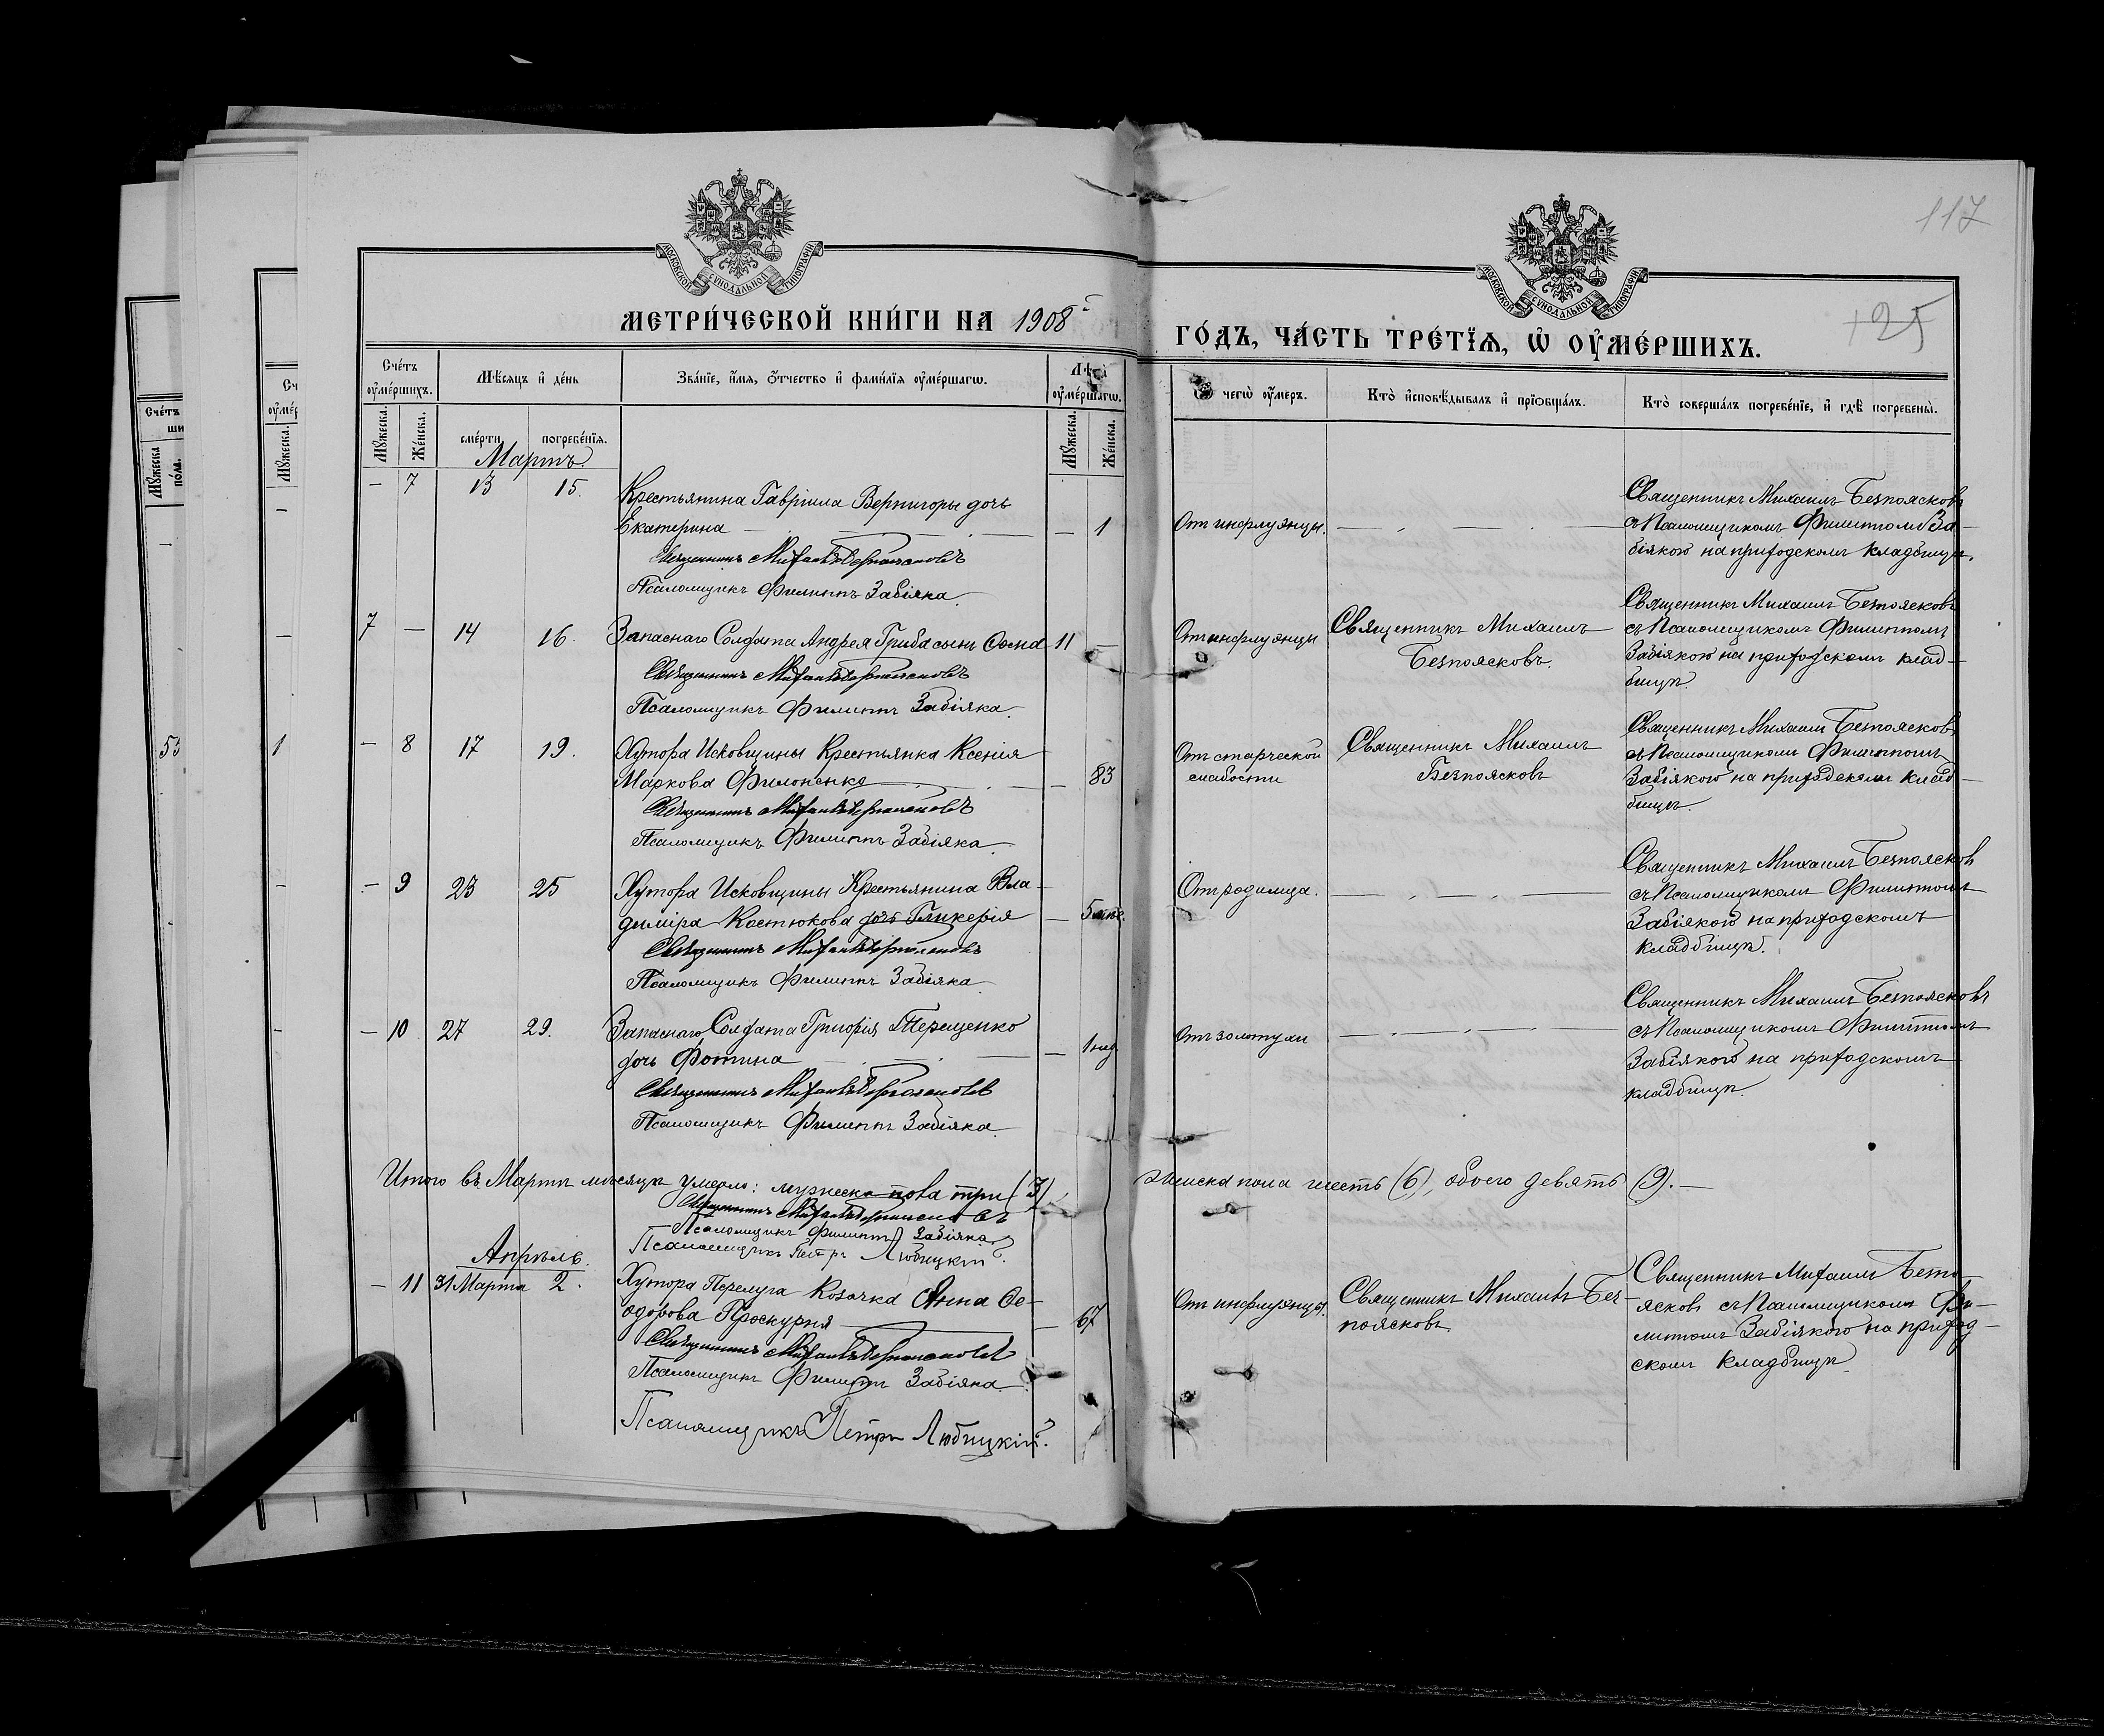 117
125
МОСКОВСКОЙ СѴНОДАЛЬНОЙ ТИПОГРАФІИ
МОСКОВСКОЙ СѴНОДАЛЬНОЙ ТИПОГРАФІИ
МЕТРИ́ЧЕСКОЙ КНИ́ГИ НА 1908 й
ГО́ДЪ, ЧА́СТЬ ТРЕ́ТЇѦ, Ѡ҆ ОУ҆МЕ́РШИХЪ.
Сче́тъ оу҆ме́ршихъ.
Мѣ́сѧцъ и҆ де́нь
Зва́нїе, и҆́мѧ, ѻ҆́тчество и҆ фами́лїѧ оу҆ме́ршагѡ.
Лѣта оу҆ме́ршагѡ.
чегѡ̀ оу҆́меръ.
Кто̀ и҆сповѣ́дывалъ и҆ прїѡбща́лъ.
Кто̀ соверша́лъ погребе́нїе, и҆ гдѣ̀ погребены̀.
Мꙋ́жеска. Же́нска. сме́рти погребе́нїѧ. Мꙋ́жеска. Же́нска.
Мартъ.
— 7 13 15. Крестьянина Гавріила Вернигоры дочь
Екатерина — 1
Священникъ Михаилъ Безпоясковъ
Псаломщикъ Филиппъ Забіяка.
Отъ инфлуэнцы.
Священникъ Михаилъ Безпоясковъ
съ Псаломщикомъ Филиппомъ За-
біякою на приходскомъ кладбищѣ.
7 — 14 16. Запаснаго Солдата Андрея Гриба сынъ 11 —
Священникъ Михаилъ Безпоясковъ
Псаломщикъ Филиппъ Забіяка.
Отъ инфлуэнцы
Священникъ Михаилъ
Безпоясковъ.
Священникъ Михаилъ Безпоясковъ
съ Псаломщикомъ Филиппомъ
Забіякою на приходскомъ клад-
бищѣ.
— 8 17 19. Хутора Исковщины Крестьянка Ксенія
Маркова Филоненко — 83
Священникъ Михаилъ Безпоясковъ
Псаломщикъ Филиппъ Забіяка.
Отъ старческой
слабости
Священникъ Михаилъ
Безпоясковъ
Священникъ Михаилъ Безпоясковъ
съ Псаломщикомъ Филиппомъ
Забіякою на приходскомъ клад-
бищѣ.
— 9 23 25 Хутора Исковщины Крестьянина Вла-
диміра Костюкова дочь Гликерія — 5 мѣс.
Священникъ Михаилъ Безпоясковъ
Псаломщикъ Филиппъ Забіяка
Отъ родимца.
Священникъ Михаилъ Безпоясковъ
съ Псаломщикомъ Филиппомъ
Забіякою на приходскомъ
кладбищѣ.
— 10 27 29. Запаснаго Солдата Григорія Терещенко
дочь Фотина — 1 нед.
Священникъ Михаилъ Безпоясковъ
Псаломщикъ Филиппъ Забіяка.
Отъ золотухи
Священникъ Михаилъ Безпоясковъ
съ Псаломщикомъ Филиппомъ
Забіякою на приходскомъ
кладбищѣ.
Итого въ Мартѣ мѣсяцѣ умерло: мужеска пола три (3), женска пола шесть (6), обоего девять (9). —
Священникъ Михаилъ Безпоясковъ
Псаломщикъ Филиппъ Забіяка
Псаломщикъ Петръ Любицкій.
Апрѣль.
— 11 31 Марта 2. Хутора Перелуга Козачка Анна Ѳе-
одорова Проскурня — 67
Священникъ Михаилъ Безпоясковъ
Псаломщикъ Филиппъ Забіяка.
Псаломщикъ Петръ Любицкій.
Отъ инфлуэнцы.
Священникъ Михаилъ Без-
поясковъ.
Священникъ Михаилъ Безпо-
ясковъ съ Псаломщикомъ Фи-
липпомъ Забіякою на приход-
скомъ кладбищѣ.